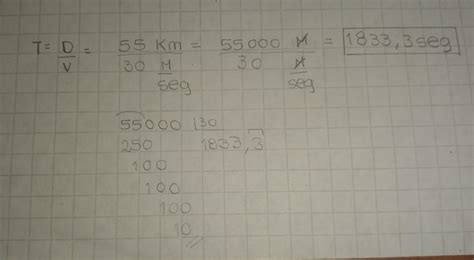 T = D/V = 55 Km / 30 M/seg = 55000 M / 30 M/seg = 1833,3 seg
55000 | 30
250 1833,3
100
100
100
10 //